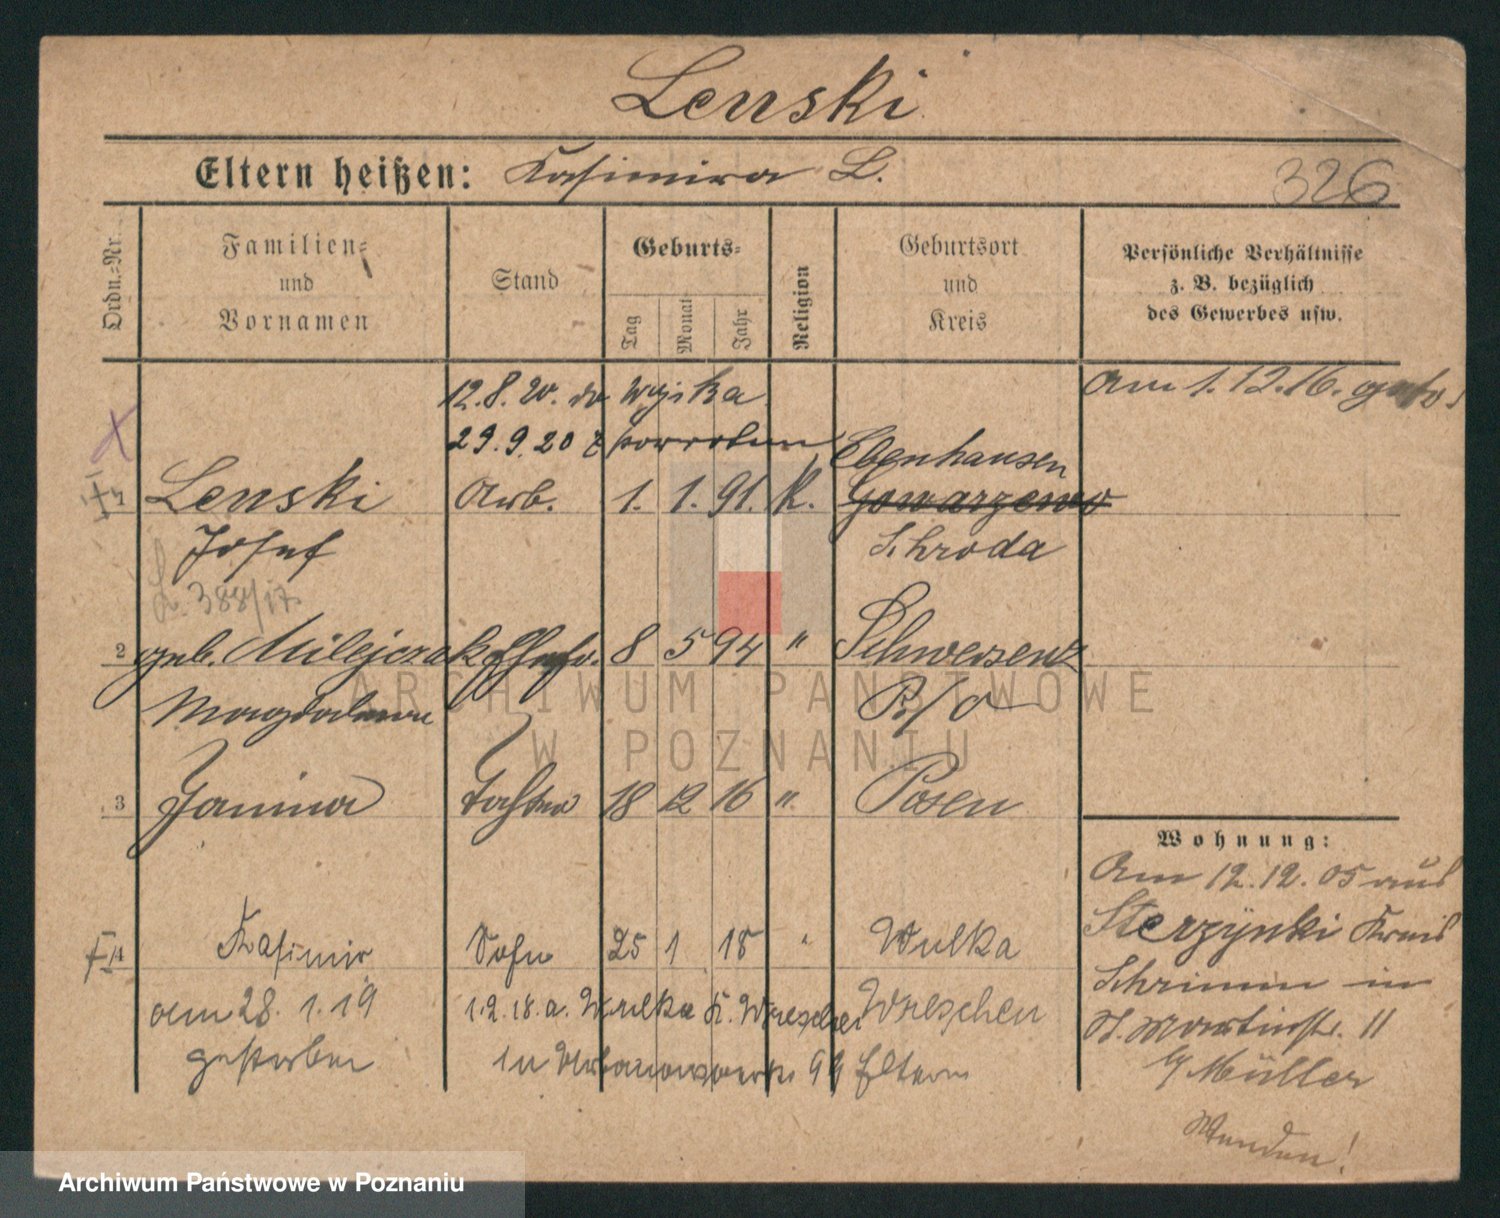 Lenski
Eltern heißen: Kasimira L.
326
Ordn.-Nr.
Familien-
und
Vornamen
Stand
Geburts-
Tag
Monat
Jahr
Religion
Geburtsort
und
Kreis
Persönliche Verhältnisse
z. B. bezüglich
des Gewerbes usw.
12.8.20.
29.9.20
Am 1.12.16.
1
Lenski
Josef
Arb.
1. 1. 91. K.
Ebenhausen
Gowarzewo
Schroda
L. 388/17.
2
geb. Milejczak
Magdalena
8 5 94 "
Schwersenz
P/O
3
Janina
Tochter
18 12 16 "
Posen
4
Kasimir
Sohn
25 1 18 "
Wulka
Wreschen
am 28. 1. 19
gestorben
1.2.18. a. Wulka K. Wreschen
in 99 Eltern
Wohnung:
Am 12.12.05 aus
Sterzynki Kreis
Schrimm in
St. Martinstr. 11
b/ Müller
Wenden!
ARCHIWUM PAŃSTWOWE
W POZNANIU
Archiwum Państwowe w Poznaniu